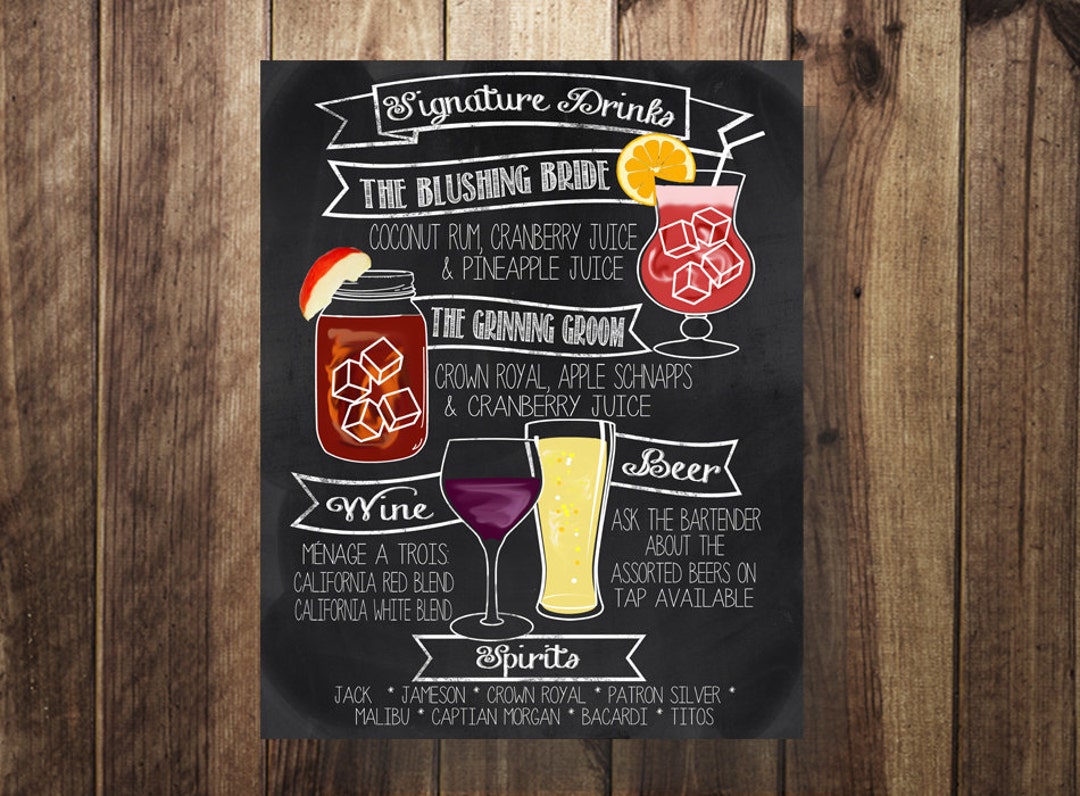 Signature Drinks
THE BLUSHING BRIDE
COCONUT RUM, CRANBERRY JUICE
& PINEAPPLE JUICE
THE GRINNING GROOM
CROWN ROYAL, APPLE SCHNAPPS
& CRANBERRY JUICE
Wine
MÉNAGE A TROIS:
CALIFORNIA RED BLEND
CALIFORNIA WHITE BLEND
Beer
ASK THE BARTENDER
ABOUT THE
ASSORTED BEERS ON
TAP AVAILABLE
Spirits
JACK * JAMESON * CROWN ROYAL * PATRON SILVER *
MALIBU * CAPTIAN MORGAN * BACARDI * TITOS